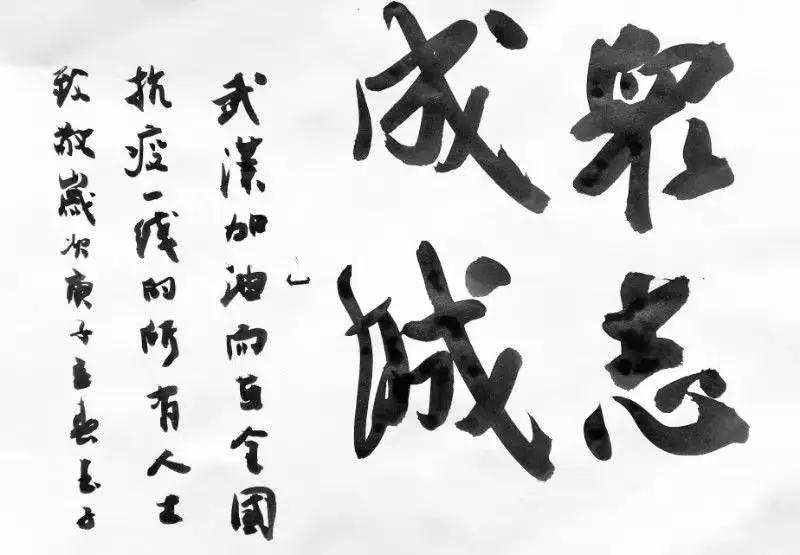 眾志
成城
武漢加油而全國
抗疫一线的所有人士
致敬歲次庚子立春